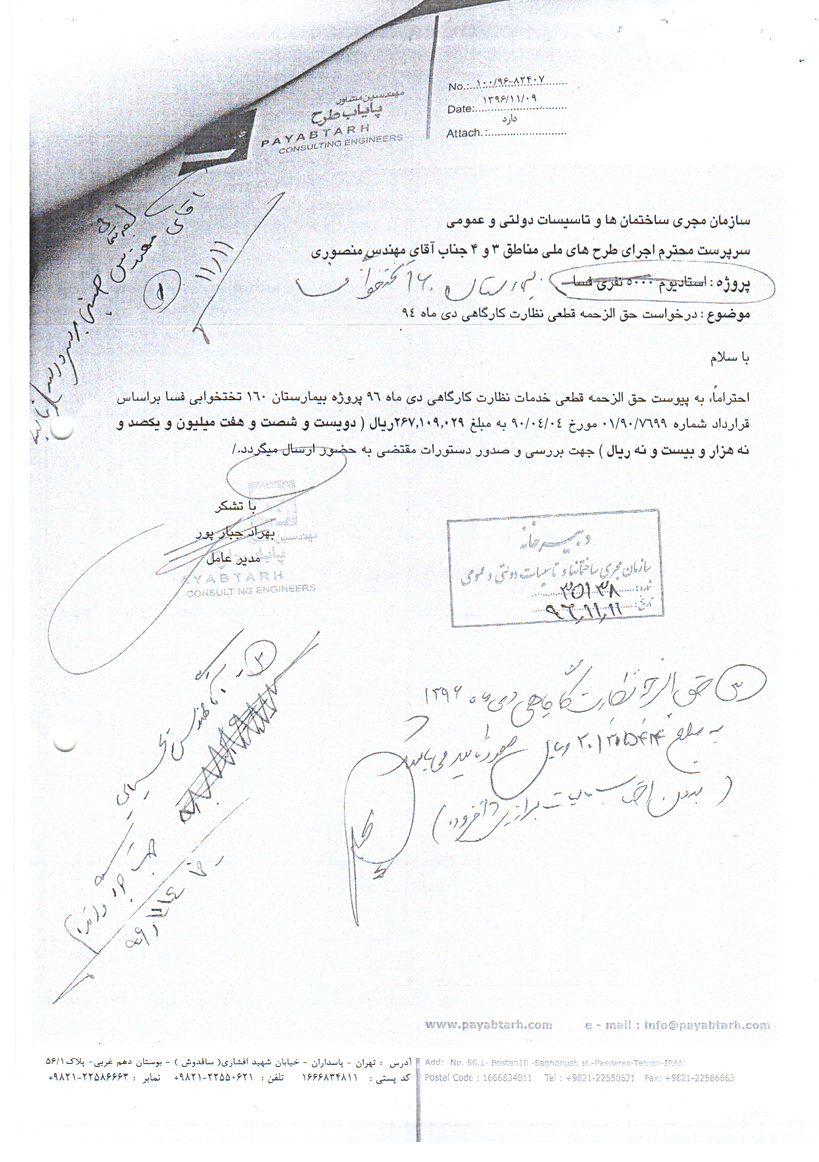 مهندسین مشاور
پایاب طرح
PAYABTARH
CONSULTING ENGINEERS
No.: ۱۰۰/۹۶-۸۲۴۰۷
Date: ۱۳۹۶/۱۱/۰۹
Attach.: دارد
سازمان مجری ساختمان ها و تاسیسات دولتی و عمومی
سرپرست محترم اجرای طرح های ملی مناطق ۳ و ۴ جناب آقای مهندس منصوری
پروژه : استادیوم ۵۰۰۰ نفری فسا بیمارستان ۱۶۰ تختخوابی فسا
موضوع : درخواست حق الزحمه قطعی نظارت کارگاهی دی ماه ۹۴
با سلام
احتراماً، به پیوست حق الزحمه قطعی خدمات نظارت کارگاهی دی ماه ۹۶ پروژه بیمارستان ۱۶۰ تختخوابی فسا براساس
قرارداد شماره ۰۱/۹۰/۷۶۹۹ مورخ ۹۰/۰۴/۰۴ به مبلغ ۲۶۷,۱۰۹,۰۲۹ریال ( دویست و شصت و هفت میلیون و یکصد و
نه هزار و بیست و نه ریال ) جهت بررسی و صدور دستورات مقتضی به حضور ارسال میگردد./
با تشکر
بهراد جبار پور
مدیر عامل
مهندسین
پایاب طرح
AYABTARH
CONSULTING ENGINEERS
دبیرخانه
سازمان مجری ساختمانها و تاسیسات دولتی و عمومی
شماره: ۳۵۱۳۸
تاریخ: ۹۶,۱۱,۱۱
۱
آقای مهندس
۱۱/۱۱
۲
آقای مهندس
جهت
۹۶/۱۱/۱۴
۳ حق الزحمه نظارت کارگاهی دی ماه ۱۳۹۶
به مبلغ ریال مورد تایید می باشد
( بدون احتساب مالیات بر ارزش افزوده )
www.payabtarh.com e - mail : info@payabtarh.com
آدرس : تهران - پاسداران - خیابان شهید افشاری( ساقدوش ) - بوستان دهم غربی- پلاک۵۶/۱
کد پستی : ۱۶۶۶۸۳۴۸۱۱ تلفن : ۲۲۵۵۰۶۲۱-۹۸۲۱+ نمابر : ۲۲۵۸۶۶۶۳-۹۸۲۱+
Add: No. 56.1- Bostan10 -Saghdoush st.-Pasdaran-Tehran-IRAN
Postal Code : 1666834811 Tel : +9821-22550621 Fax: +9821-22586663